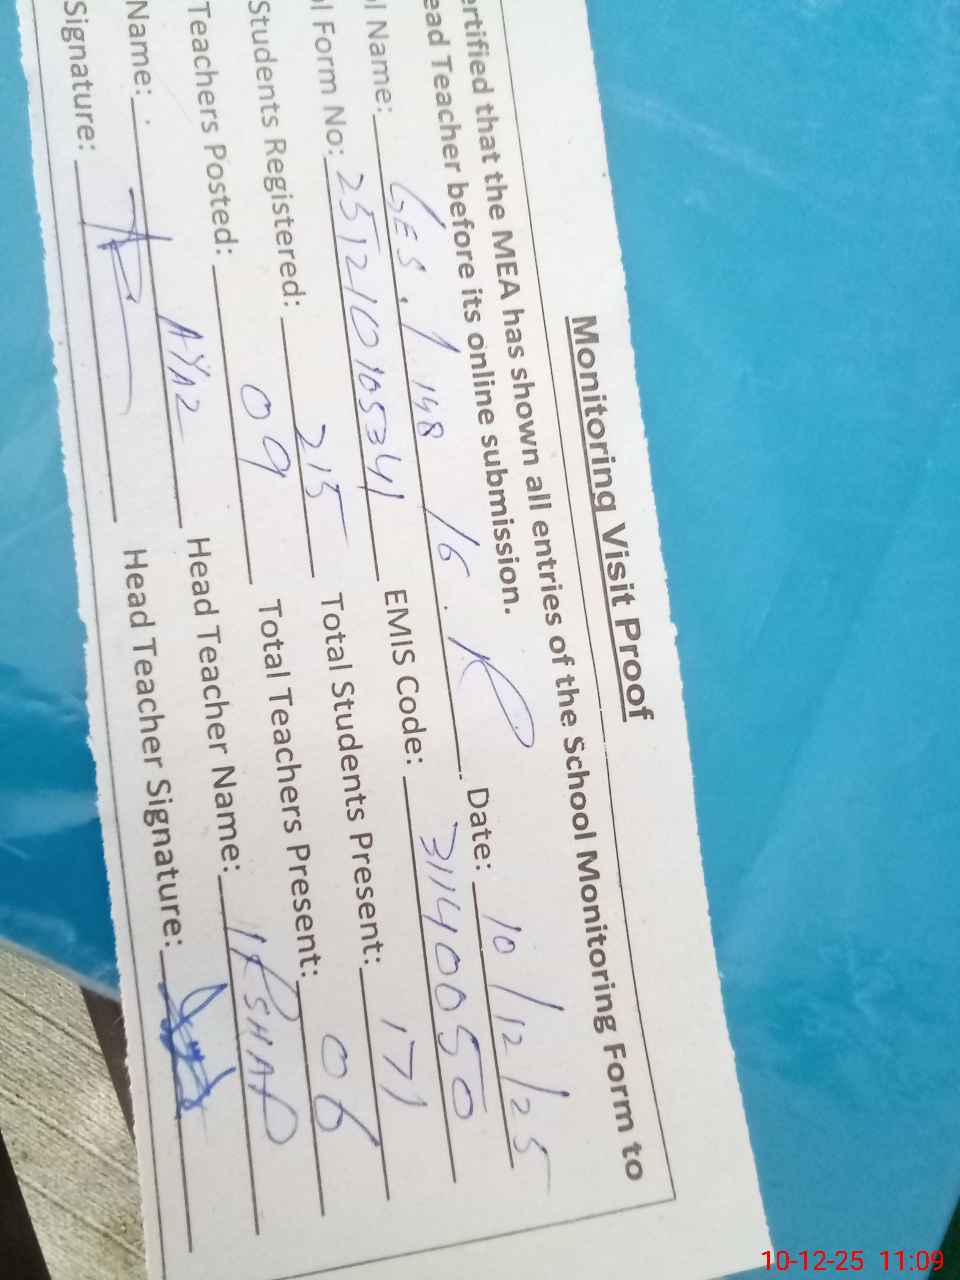 Monitoring Visit Proof
ertified that the MEA has shown all entries of the School Monitoring Form to
ead Teacher before its online submission.
ol Name: GES. 148 /6.R Date: 10/12/25
ol Form No: 251210105341 EMIS Code: 31140050
Students Registered: 215 Total Students Present: 171
Teachers Posted: 09 Total Teachers Present: 06
Name: AYAZ Head Teacher Name: IRSHAD
Signature: Head Teacher Signature:
10-12-25 11:09